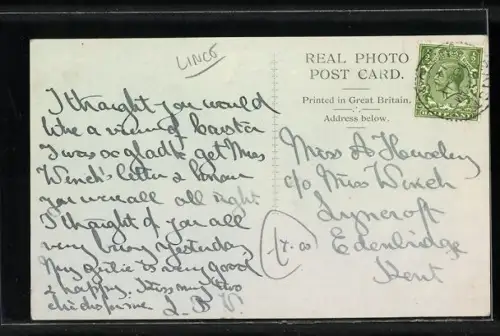 LINCS
I thought you would
like a view of
I was so glad to get Miss
Wench's letter & know
you were all all right.
I thought of you all
very busy yesterday
My girlie is very good
& happy. Kiss my two
for me L. B. V.
REAL PHOTO
POST CARD.
Printed in Great Britain.
Address below.
Miss A
c/o Miss Wench
Lyncroft
Edenbridge
Kent